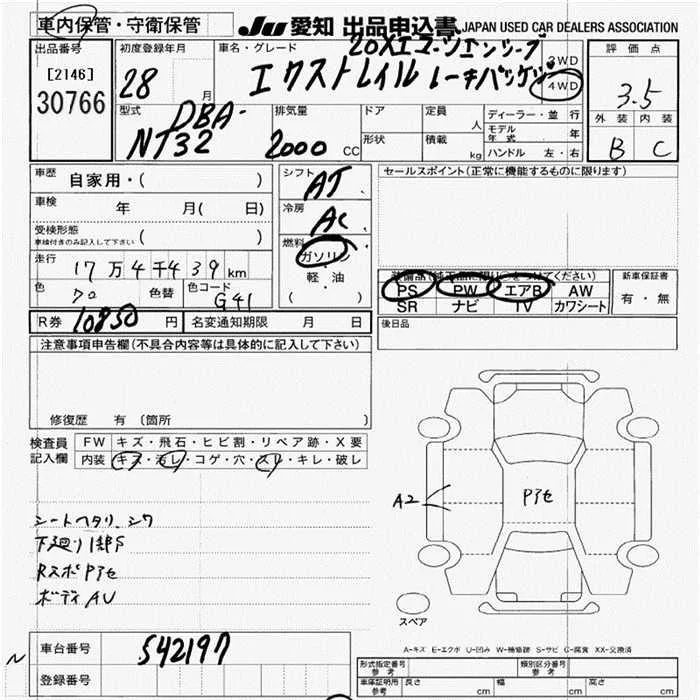 車内保管・守衛保管
JU 愛知 出品申込書 JAPAN USED CAR DEALERS ASSOCIATION
出品番号
[2146]
30766
初度登録年月
28 月
車名・グレード
20Xエコ・
エクストレイル
2WD
4WD
評価点
3.5
外装 内装
B C
型式
DBA-
NT32
排気量
2000 CC
ドア
形状
定員 人
積載 kg
ディーラー・並行
モデル年式 年
ハンドル 左・右
車歴
自家用・( )
車検 年 月( 日)
受検形態
車検付きのみ記入して下さい ( )
走行
17万4千439km
色 色替 色コード G41
シフト
AT
冷房
AC
燃料
ガソリン
・
軽・油
( )
セールスポイント(正常に機能するものに限ります)
PS PW エアB AW
SR ナビ TV カワシート
新車保証書
有・無
R券 10850 円 名変通知期限 月 日
後日品
注意事項申告欄(不具合内容等は具体的に記入して下さい)
修復歴 有 (箇所 )
検査員記入欄
FW キズ・飛石・ヒビ割・リペア跡・X要
内装 キズ・汚レ・コゲ・穴・スレ・キレ・破レ
シートヘタリ、シワ
下廻り1部S
RスポPアセ
ボディAU
A2
Pアセ
スペア
A-キズ E-エクボ U-凹み W-補修跡 S-サビ C-腐食 XX-交換済
N
車台番号 542197
登録番号
形式指定番号 参考
類別区分番号 参考
車庫証明用 参考 長さ cm 幅 cm 高さ cm